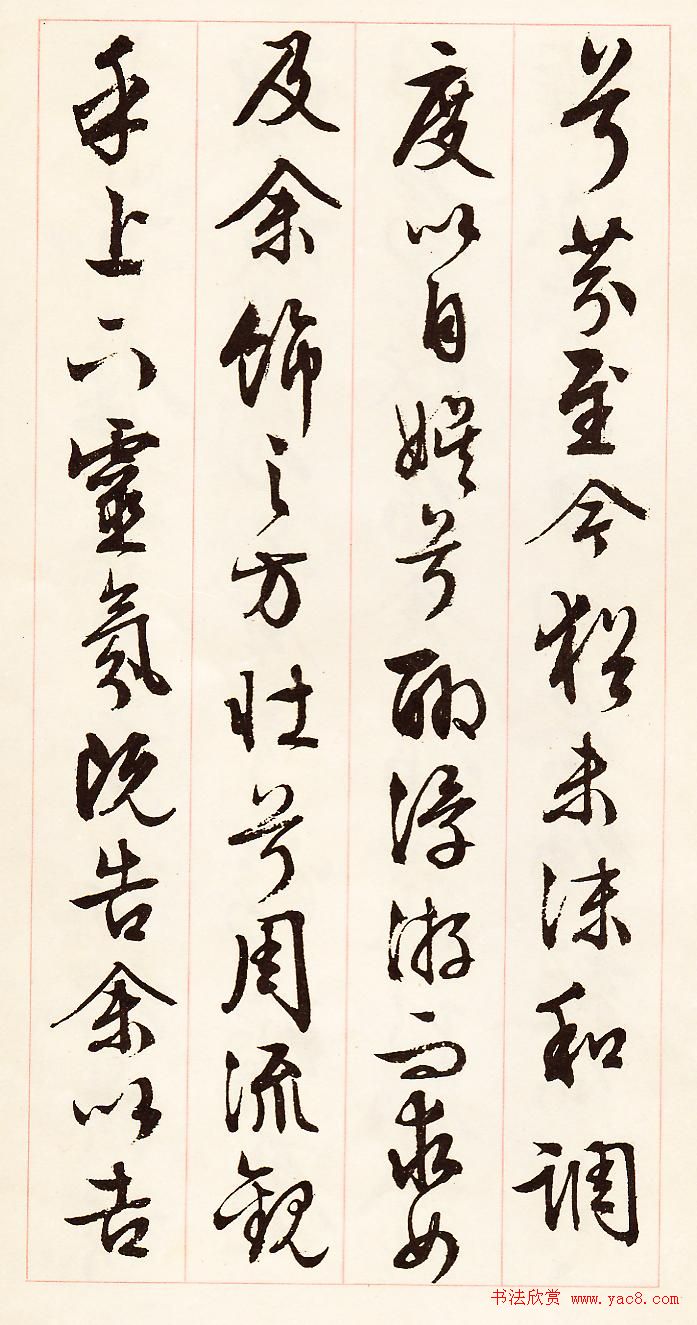 兮芬至今猶未沬和調
度以自娛兮聊浮游而求女
及余飾之方壯兮周流觀
乎上下靈氛既告余以吉
书法欣赏 www.yac8.com